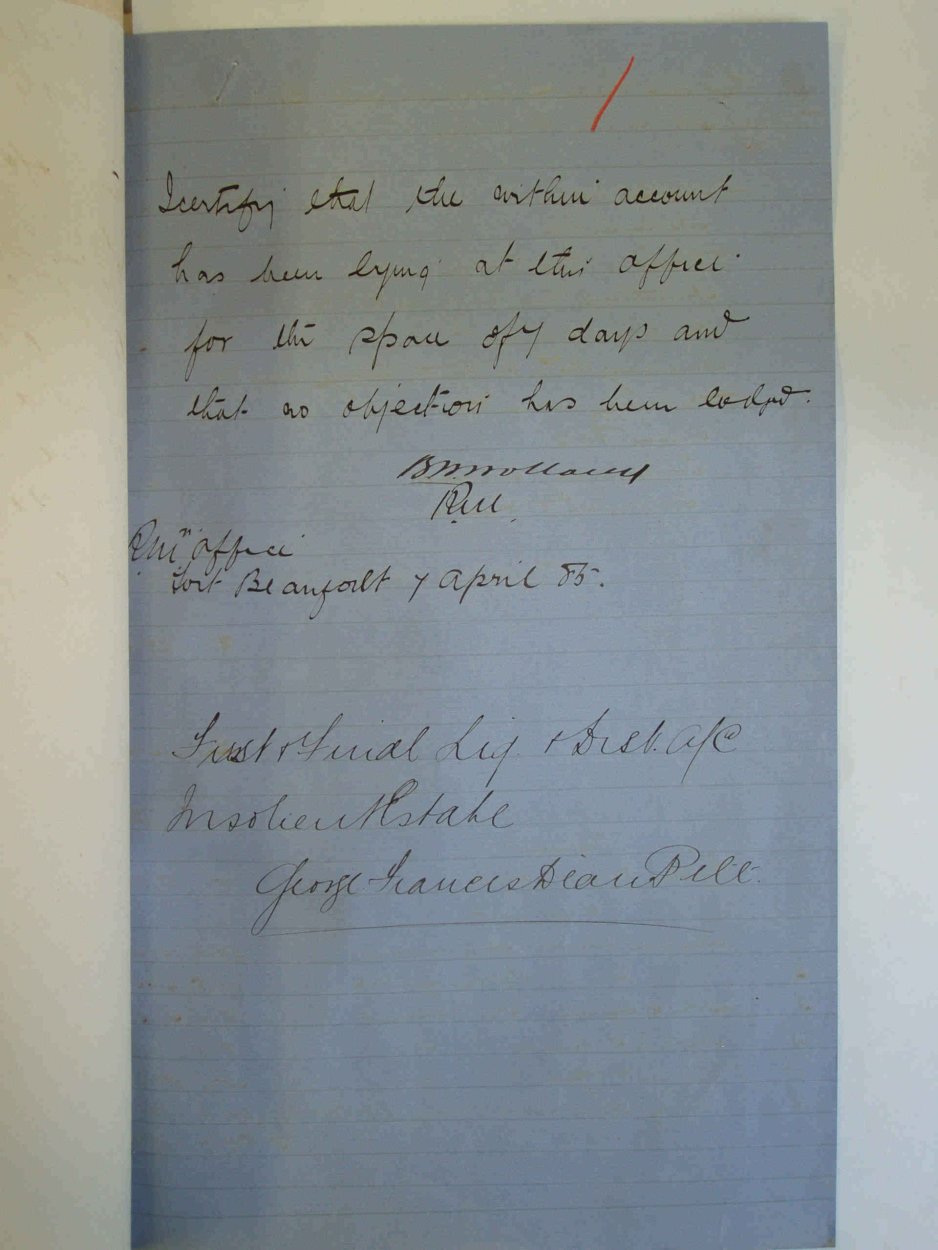 I certify that the within account
has been lying at this office
for the space of 7 days and
that no objection has been lodged.
RM
R.M's office
Fort Beaufort 7 April 85.
First & Final Liq. & Dist. A/c
Insolvent Estate
George Francis Dean Pell